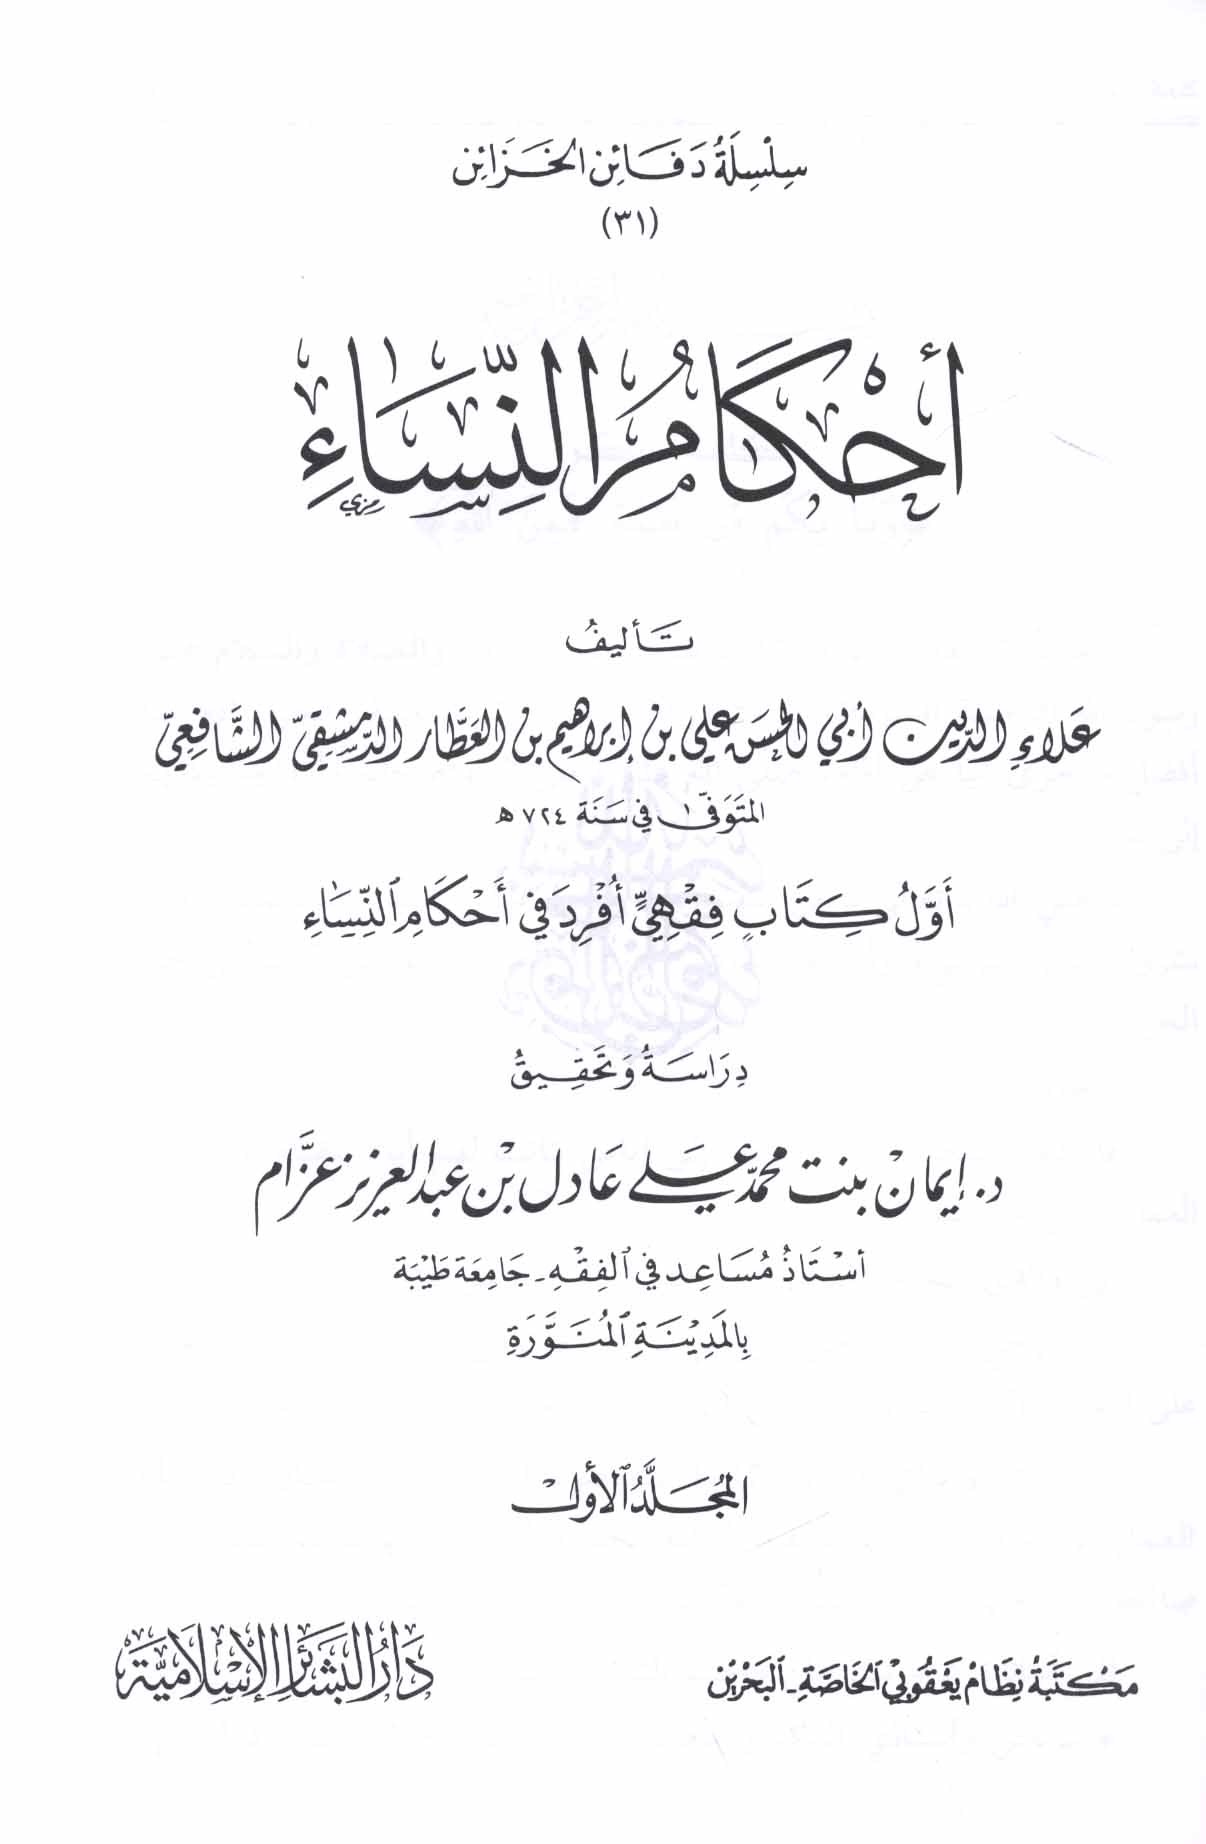 سِلْسِلَةُ دَفَائِن الخَزَائِن
(٣١)
أَحْكَامُ النِّسَاءِ
تَأليفُ
عَلاءِ الدِّين أبي الحسَن علي بن إبراهيم بن العَطَّار الدِّمشقيّ الشَّافعيّ
المتَوَفّى في سَنَة ٧٢٤ هـ
أَوَّلُ كِتَابٍ فِقْهِيٍّ أُفْرِدَ في أَحْكَامِ النِّسَاءِ
دِرَاسَةُ وَتَحقِيقُ
د. إيمان بنت محمّد علي عَادل بن عبد العزيز عزَّام
أسْتَاذُ مُسَاعِد في الفِقْهِ - جَامِعَة طَيْبَة
بِالمَدِيْنَةِ المُنَوَّرَةِ
المُجَلَّدُ الأوّل
مَكْتَبَةُ نِظَام يَعْقُوبِيْ الخَاصَّةِ - البَحْرَيْن
دَارُ البَشَائِر الإِسْلَامِيَّة